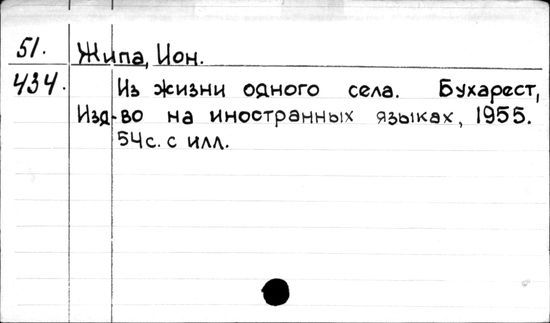 51. Жипа, Ион.
434. Из жизни одного села. Бухарест,
Изд-во на иностранных языках, 1955.
54с. с илл.